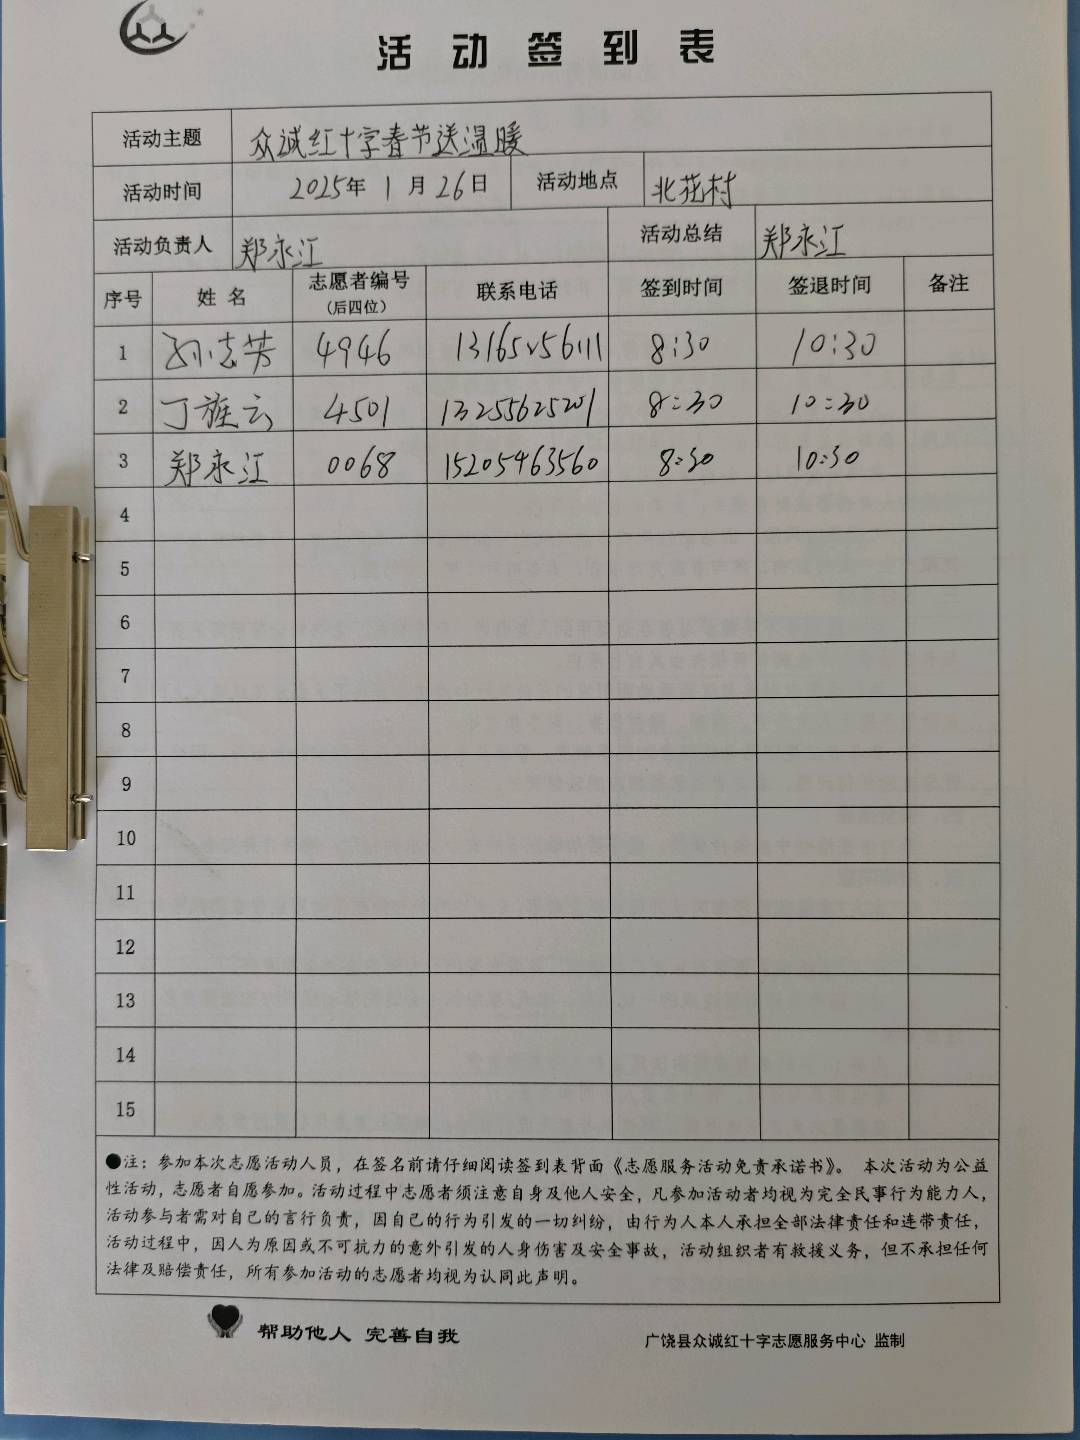 活动签到表
活动主题 众诚红十字春节送温暖
活动时间 2025年1月26日 活动地点 北花村
活动负责人 郑永江 活动总结 郑永江
序号 姓名 志愿者编号（后四位） 联系电话 签到时间 签退时间 备注
1 孙志芳 4946 13165256111 8:30 10:30
2 丁旌云 4501 13255625201 8:30 10:30
3 郑永江 0068 15205463560 8:30 10:30
4
5
6
7
8
9
10
11
12
13
14
15
●注：参加本次志愿活动人员，在签名前请仔细阅读签到表背面《志愿服务活动免责承诺书》。 本次活动为公益
性活动，志愿者自愿参加。活动过程中志愿者须注意自身及他人安全，凡参加活动者均视为完全民事行为能力人，
活动参与者需对自己的言行负责，因自己的行为引发的一切纠纷，由行为人本人承担全部法律责任和连带责任，
活动过程中，因人为原因或不可抗力的意外引发的人身伤害及安全事故，活动组织者有救援义务，但不承担任何
法律及赔偿责任，所有参加活动的志愿者均视为认同此声明。
帮助他人 完善自我
广饶县众诚红十字志愿服务中心 监制